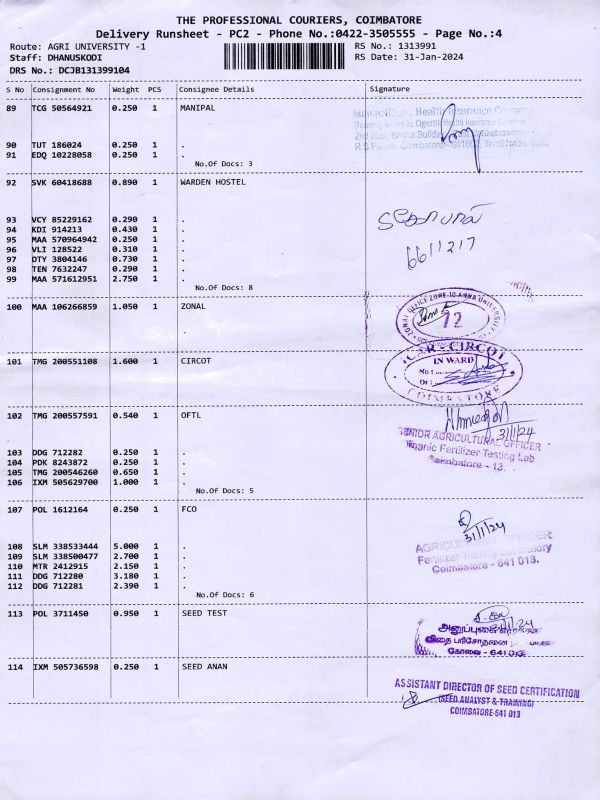 THE PROFESSIONAL COURIERS, COIMBATORE
Delivery Runsheet - PC2 - Phone No.:0422-3505555 - Page No.:4
Route: AGRI UNIVERSITY -1
RS No.: 1313991
Staff: DHANUSKODI
RS Date: 31-Jan-2024
DRS No.: DCJB131399104
S No Consignment No Weight PCS Consignee Details Signature
89 TCG 50564921 0.250 1 MANIPAL
90 TUT 186024 0.250 1 .
91 EDQ 10228058 0.250 1 .
No.Of Docs: 3
92 SVK 60418688 0.890 1 WARDEN HOSTEL
93 VCY 85229162 0.290 1 .
94 KDI 914213 0.430 1 .
95 MAA 570964942 0.250 1 .
96 VLI 128522 0.310 1 .
97 DTY 3804146 0.730 1 .
98 TEN 7632247 0.290 1 .
99 MAA 571612951 2.750 1 .
No.Of Docs: 8
6611217
100 MAA 106266859 1.050 1 ZONAL
72
101 TMG 200551108 1.600 1 CIRCOT
ICAR-CIRCOT
IN WARD
No:
Dt:
COIMBATORE
102 TMG 200557591 0.540 1 OFTL
31/1/24
SENIOR AGRICULTURAL OFFICER
Organic Fertilizer Testing Lab
Coimbatore - 13.
103 DDG 712282 0.250 1 .
104 PDK 8243872 0.250 1 .
105 TMG 200546260 0.650 1 .
106 IXM 505629700 1.000 1 .
No.Of Docs: 5
107 POL 1612164 0.250 1 FCO
31/1/24
AGRICULTURAL OFFICER
Fertilizer Testing Laboratory
Coimbatore - 641 013.
108 SLM 338533444 5.000 1 .
109 SLM 338500477 2.700 1 .
110 MTR 2412915 2.150 1 .
111 DDG 712280 3.180 1 .
112 DDG 712281 2.390 1 .
No.Of Docs: 6
113 POL 3711450 0.950 1 SEED TEST
விதை பரிசோதனை
கோவை - 641 013.
114 IXM 505736598 0.250 1 SEED ANAN
ASSISTANT DIRECTOR OF SEED CERTIFICATION
(SEED ANALYST & TRAINING)
COIMBATORE-641 013